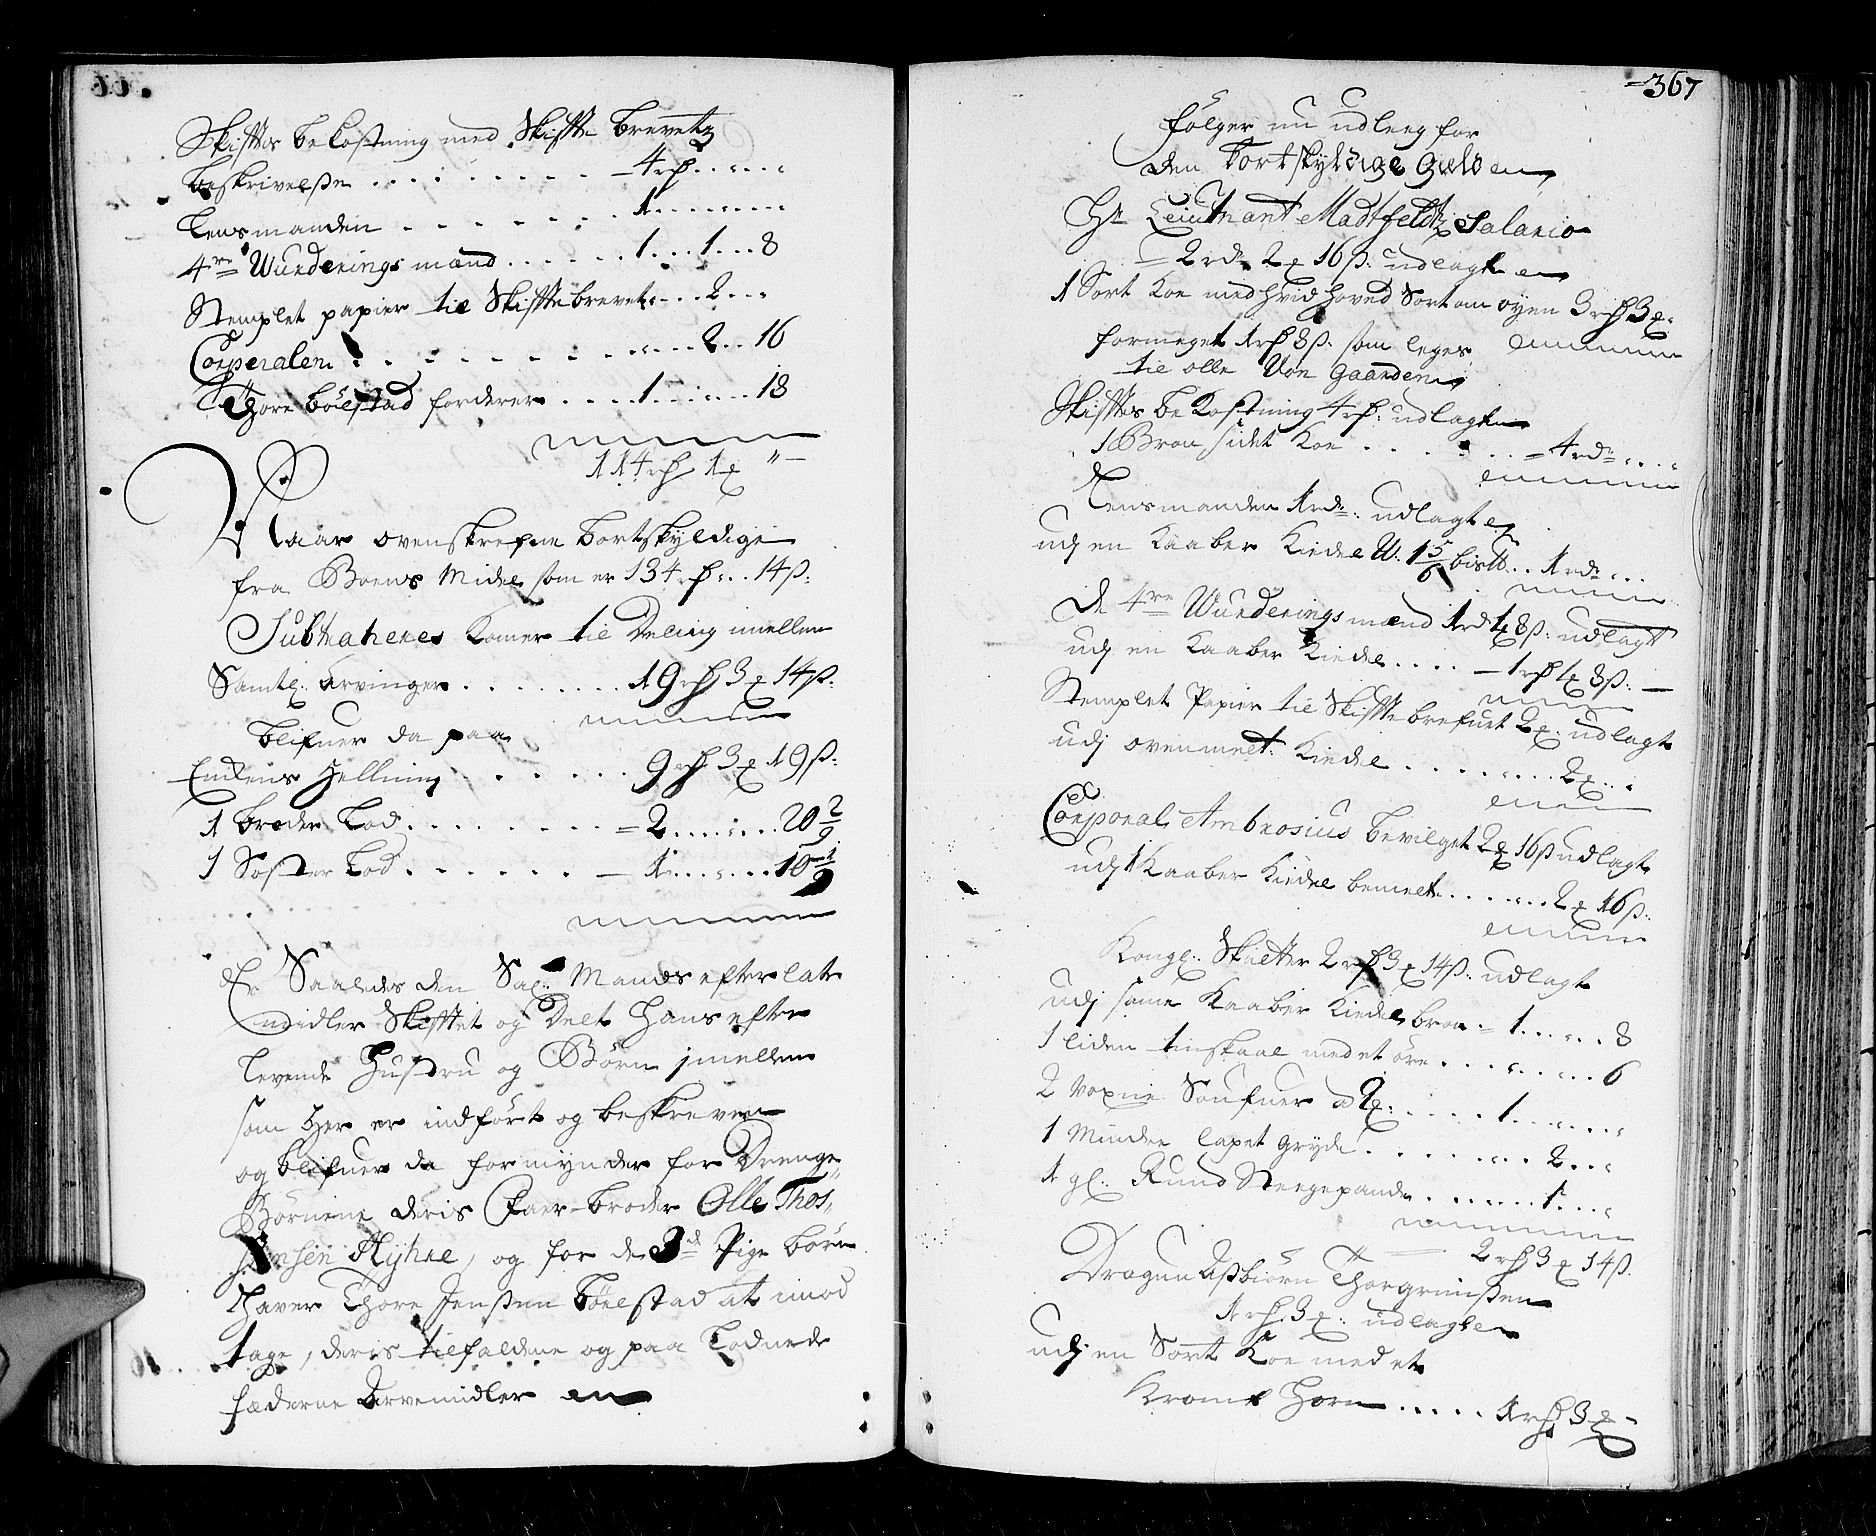 Skifttes bekostning med Skifte brevetz
beskrivelsse . . . . . . . . . 4 rh . . . .
Lensmanden . . . . . . . 1 . . . . . .
4re Wurderings mænd . . . . . . 1 . . . 1 . . . 8
Stemplet papier til Skifttebrevet . . . 2 . . .
Corperalen . . . . . . . . . . 2 . . 16
Thore Bölestad forderer . . . . 1 . . . . . . 18
114 rh 1 " —
Naar ovenskrefne bortskyldige
fra Boens Midel som er 134 rh . . . 14 ß:
Subtraheres komer til Deling imellem
Samtl: arvinger . . . . . . . 19 rh 3 14 ß:
blifuer da paa
Enkens Helning . . . . . . . 9 rh 3 19 ß:
1 broder Lod . . . . . . . . = 2 . . . . . . 20 2/9
1 Söster Lod . . . . . . — 1 . . . . . . 10 1/9
Er Saaledes den Sal: Mands efterlate
midler Skifttet og Delt Hans efter
levende Hustru og Börn jmellem
som her er indfört og beskreven
og blifuer da formynder for Drenge
Börnene deris Faer-broder Olle Thos-
Jensen Myhre, og for de 3de Pige börn
Haver Thore Jenssen Bölestad at imod
tage, deris tilfaldene og paa Lodnede
fæderne Arvemidler en
367
fölger nu udleeg for
den bortskyldige gield en
Hr Leiutnant Madtfeldtz Salario
= 2 rd 2 16 ß: udlagt en
1 Sort Koe med hvid hoved Sort om öyen 3 rh 3
formeget 1 rh 8 ß: som leges
til olle Von gaarden
Skifttes bekostning 4 rh: udlagt en
1 Bron sidet Koe . . . . . . = 4 rd . . . .
Lensmanden 1 rd: udlagt en
udj en Kaaber Kiedel W: 1 5/6 bistt: . . 1 rd . . .
De 4re Wurderings mænd 1 rd 1 8 ß: udlagt
udj en Kaaber Kiedel . . . . — 1 rh 1 8 ß: —
Stemplet Papier til Skifttebrefuet 2 : udlagt
udj ovenmelt: Kiedel . . . . . . . . 2 . . .
Corporal Ambrosius bevilget 2 16 ß udlagt
udj 1 Kaaber Kiedel bemelt . . . . . . . 2 16 ß:
Kongl: Skatter 2 rh 3 14 ß: udlagt
udj same Kaaber Kiedel = 1 . . . . . 8
1 liden tinskaal med et öre . . . . . . . . 6
2 Voxne Saufuer a 2 . . . . . 1 . . . . . .
1 Mindre lapet gryde . . . . . . . . 2 . . .
1 gl: Rund Steegepande . . . . . . 1 . . . .
2 rh 3 14 ß:
Dragun Assbiörn Thorgrimssen
1 rh 3 : udlagt en
udj en Sort Koe med et
Kromt Horn . . . . . 1 rh 3